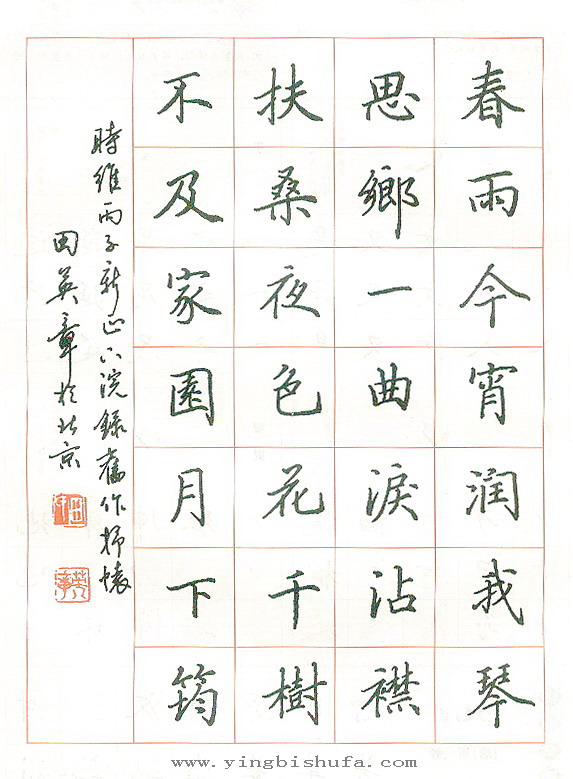 春雨今宵润我琴
思鄉一曲淚沾襟
扶桑夜色花千樹
不及家園月下筠
時維丙子新正下浣錄舊作抒懷
田英章於北京
www.yingbishufa.com